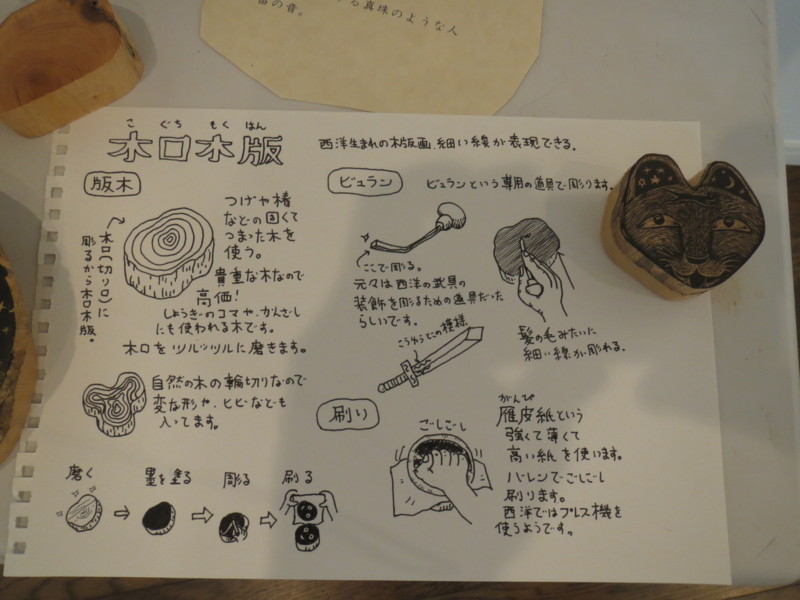 る真珠のような人
笛の音。
こ ぐち もく はん
木口木版
西洋生まれの木版画。細い線が表現できる。
版木
つげや椿
などの固くて
つまった木を
使う。
貴重な木なので
高価!
しょうぎのコマや、かんざし
にも使われる木です。
木口(切り口)に
彫るから木口木版。
木口をツルッツルに磨きます。
自然の木の輪切りなので
変な形や、ヒビなども
入ってます。
磨く
墨を塗る
彫る
刷る
ビュラン
ビュランという専用の道具で彫ります。
ここで彫る。
元々は西洋の武具の
装飾を彫るための道具だった
らしいです。
こうゆうとこの模様
髪の毛みたいに
細い線が彫れる。
刷り
ごしごし
がんぴ
雁皮紙という
強くて薄くて
高い紙を使います。
バレンでごしごし
刷ります。
西洋ではプレス機を
使うようです。